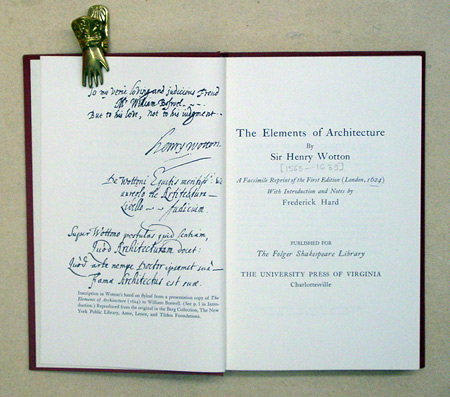 To my verie loving and judicious Freud
Mr William Boswel.
But to his love, not to his judgment.
Henry Wotton.
De Wottoni Equitis
aureolo de Architectura
Libello Judicium.
Super Wottono postulas quid sentiam,
Quod Architecturam docet:
Quod arte nempe Doctor
Fama Architectus est suæ.
Inscription in Wotton's hand on flyleaf from a presentation copy of The
Elements of Architecture (1624) to William Boswell. (See p. in Intro-
duction.) Reproduced from the original in the Berg Collection, The New
York Public Library, Astor, Lenox, and Tilden Foundations.
The Elements of Architecture
By
Sir Henry Wotton
[1568-1639]
A Facsimile Reprint of the First Edition (London, 1624)
With Introduction and Notes by
Frederick Hard
PUBLISHED FOR
The Folger Shakespeare Library
THE UNIVERSITY PRESS OF VIRGINIA
Charlottesville